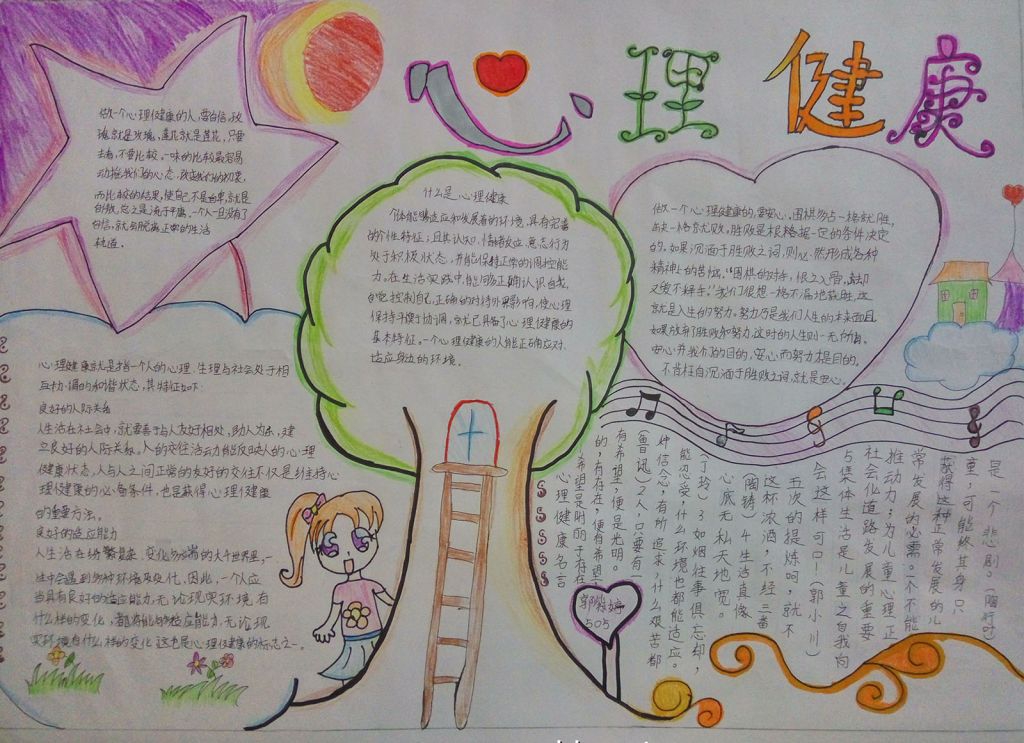 心理健康
做一个心理健康的人,要自信,玫
瑰就是玫瑰,莲花就是莲花,只要
去看,不要比较。一味的比较最容易
动摇我们的心态,改变我们的初衷,
而比较的结果,使自己不是自卑就是
自傲,总之是流于平庸。一个人一旦没有了
自信,就会脱离正常的生活
轨道。
什么是心理健康
个体能够适应和发展着的环境,具有完善
的个性特征;且其认知,情绪反应,意志行为
处于积极状态,并能保持正常的调控能
力。在生活实践中,能够正确认识自我,
自觉控制自己,正确的对待外界影响,使心理
保持平衡协调,就已具备了心理健康的
基本特征。一个心理健康的人能正确应对
适应身边的环境。
做一个心理健康的,要安心。围棋多占一格就胜,
缺一格就败,胜败是根据一定的条件决定
的,如果沉湎于胜败之词,则必然形成各种
精神上的苦恼。“围棋的对手,恨之入骨,离却
又爱不择手。”我们很想一格不漏地获胜,这
就是人生的努力。努力乃是我们人生的本来面目
如果放弃了胜败和努力,这时的人生则一无所有。
安心并我们的目的,安心而努力才是目的。
不苦柱自沉湎于胜败之词,就是安心。
心理健康就是指一个人的心理、生理与社会处于相
互协调的和谐状态,其特征如下:
良好的人际关系
人生活在社会中,就要善于与人友好相处,助人为乐,建
立良好的人际关系。人的交往活动能反映人的心理
健康状态,人与人之间正常的友好的交往不仅是维持心
理健康的必备条件,也是获得心理健康
的重要方法。
良好的适应能力
人生活在纷繁复杂、变化多端的大千世界里,一
生中会遇到多种环境及变化,因此,一个人应
当具有良好的适应能力,无论现实环境有
什么样的变化,都将能够适应能力,无论现
实环境有什么样的变化 这也是心理健康的标志之一。
心理健康名言
1希望是附丽于存在
的,有存在,便有希望,
有希望,便是光明。
(鲁迅)2人只要有一
种信念,有所追求,什么艰苦都
能忍受,什么环境也都能适应。
(丁玲)3如烟往事俱忘却,
心底无私天地宽。
(陶铸)4生活真像
这杯浓酒,不经三番
五次的提炼呵,就不
会这样可口!(郭小川)
与集体生活是儿童之自我向
社会化道路发展的重要
推动力;为儿童心理正
常发展的必需。一个不能
获得这种正常发展的儿
童,可能终其身只
是一个悲剧。(陶行知)
505